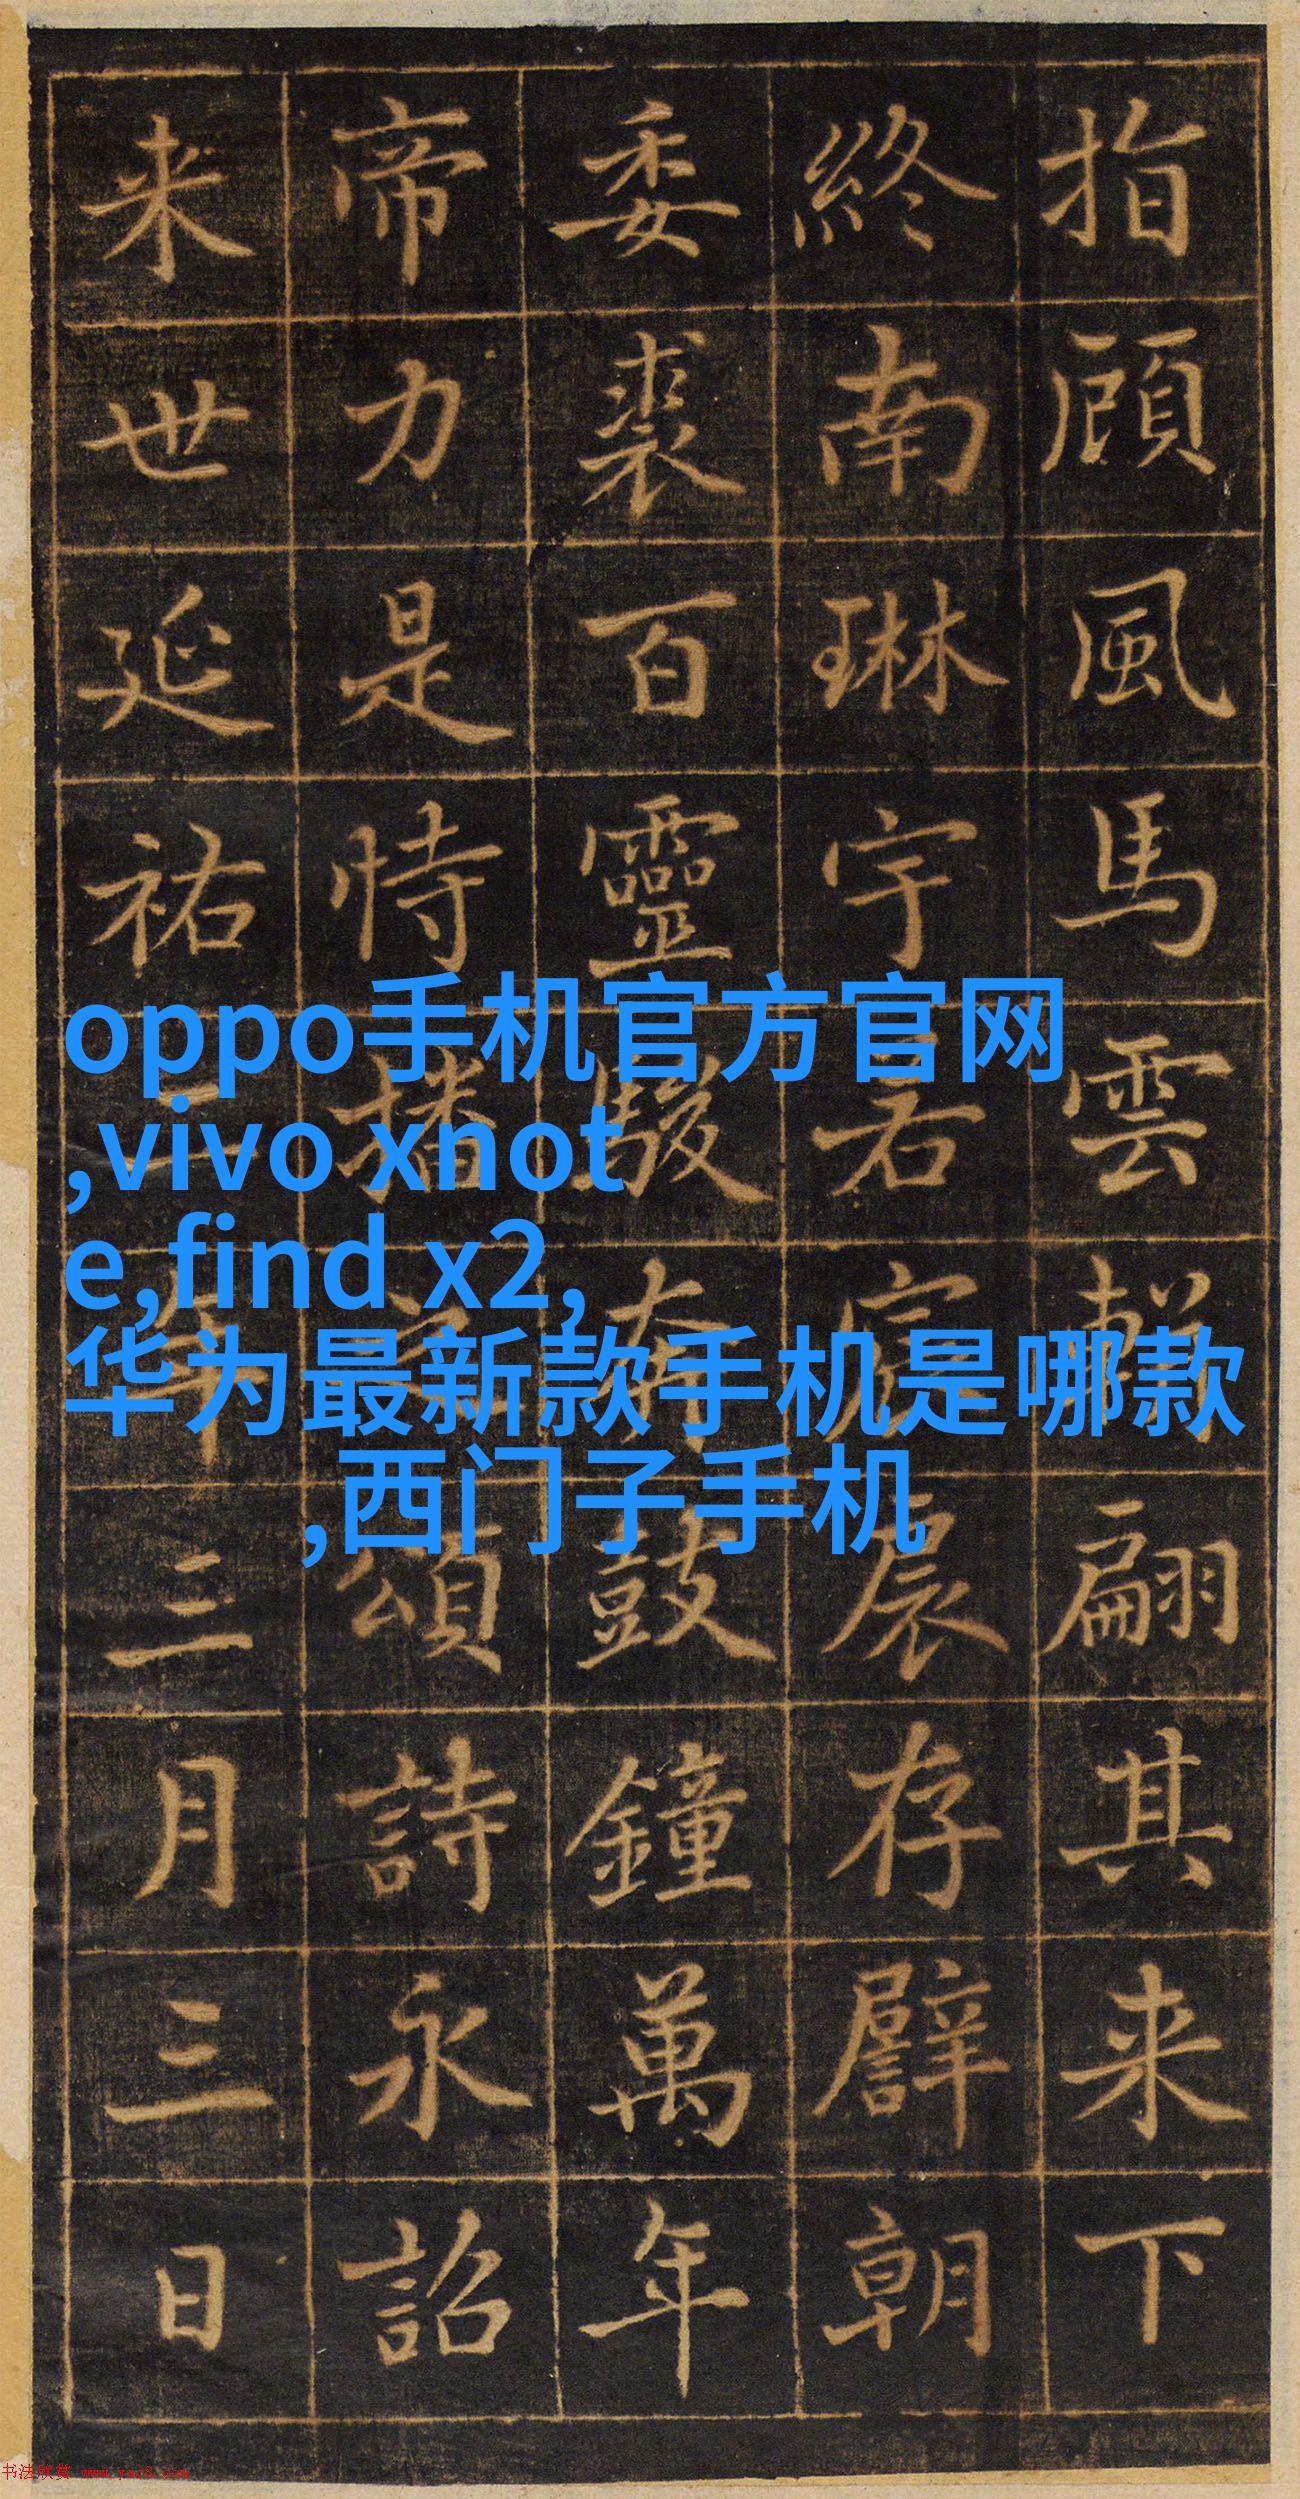 指顧風馬雲軿翩其来下
終南琳宇若存朝
委裘百靈駿奔鼓鐘萬年
帝力是恃播之頌詩永詔
来世延祐年三月三日
oppo手机官方官网
,vivo xnot
e,find x2,
华为最新款手机是哪款
,西门子手机
书法欣赏 www.yac8.com